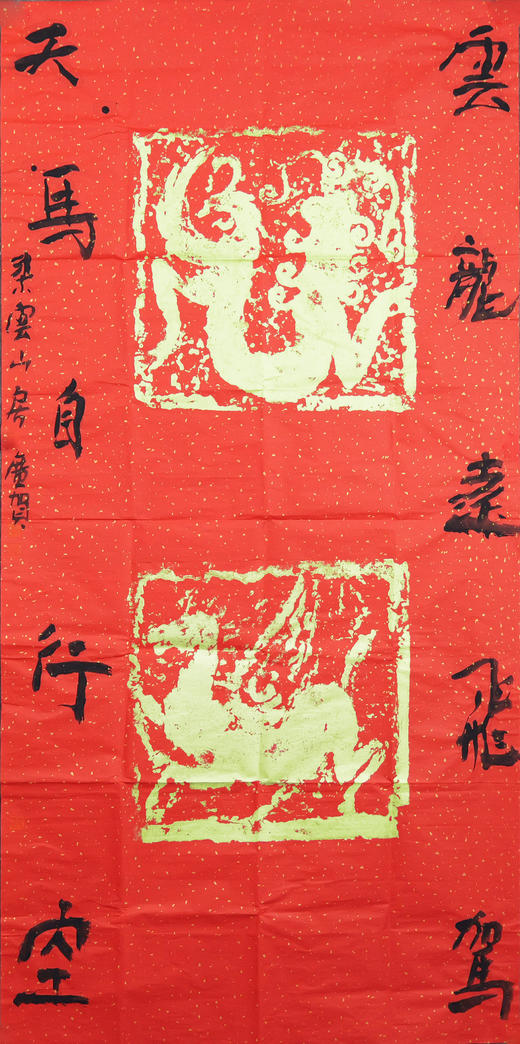 雲龍遠飛駕
天馬自行空
雲山房
賀